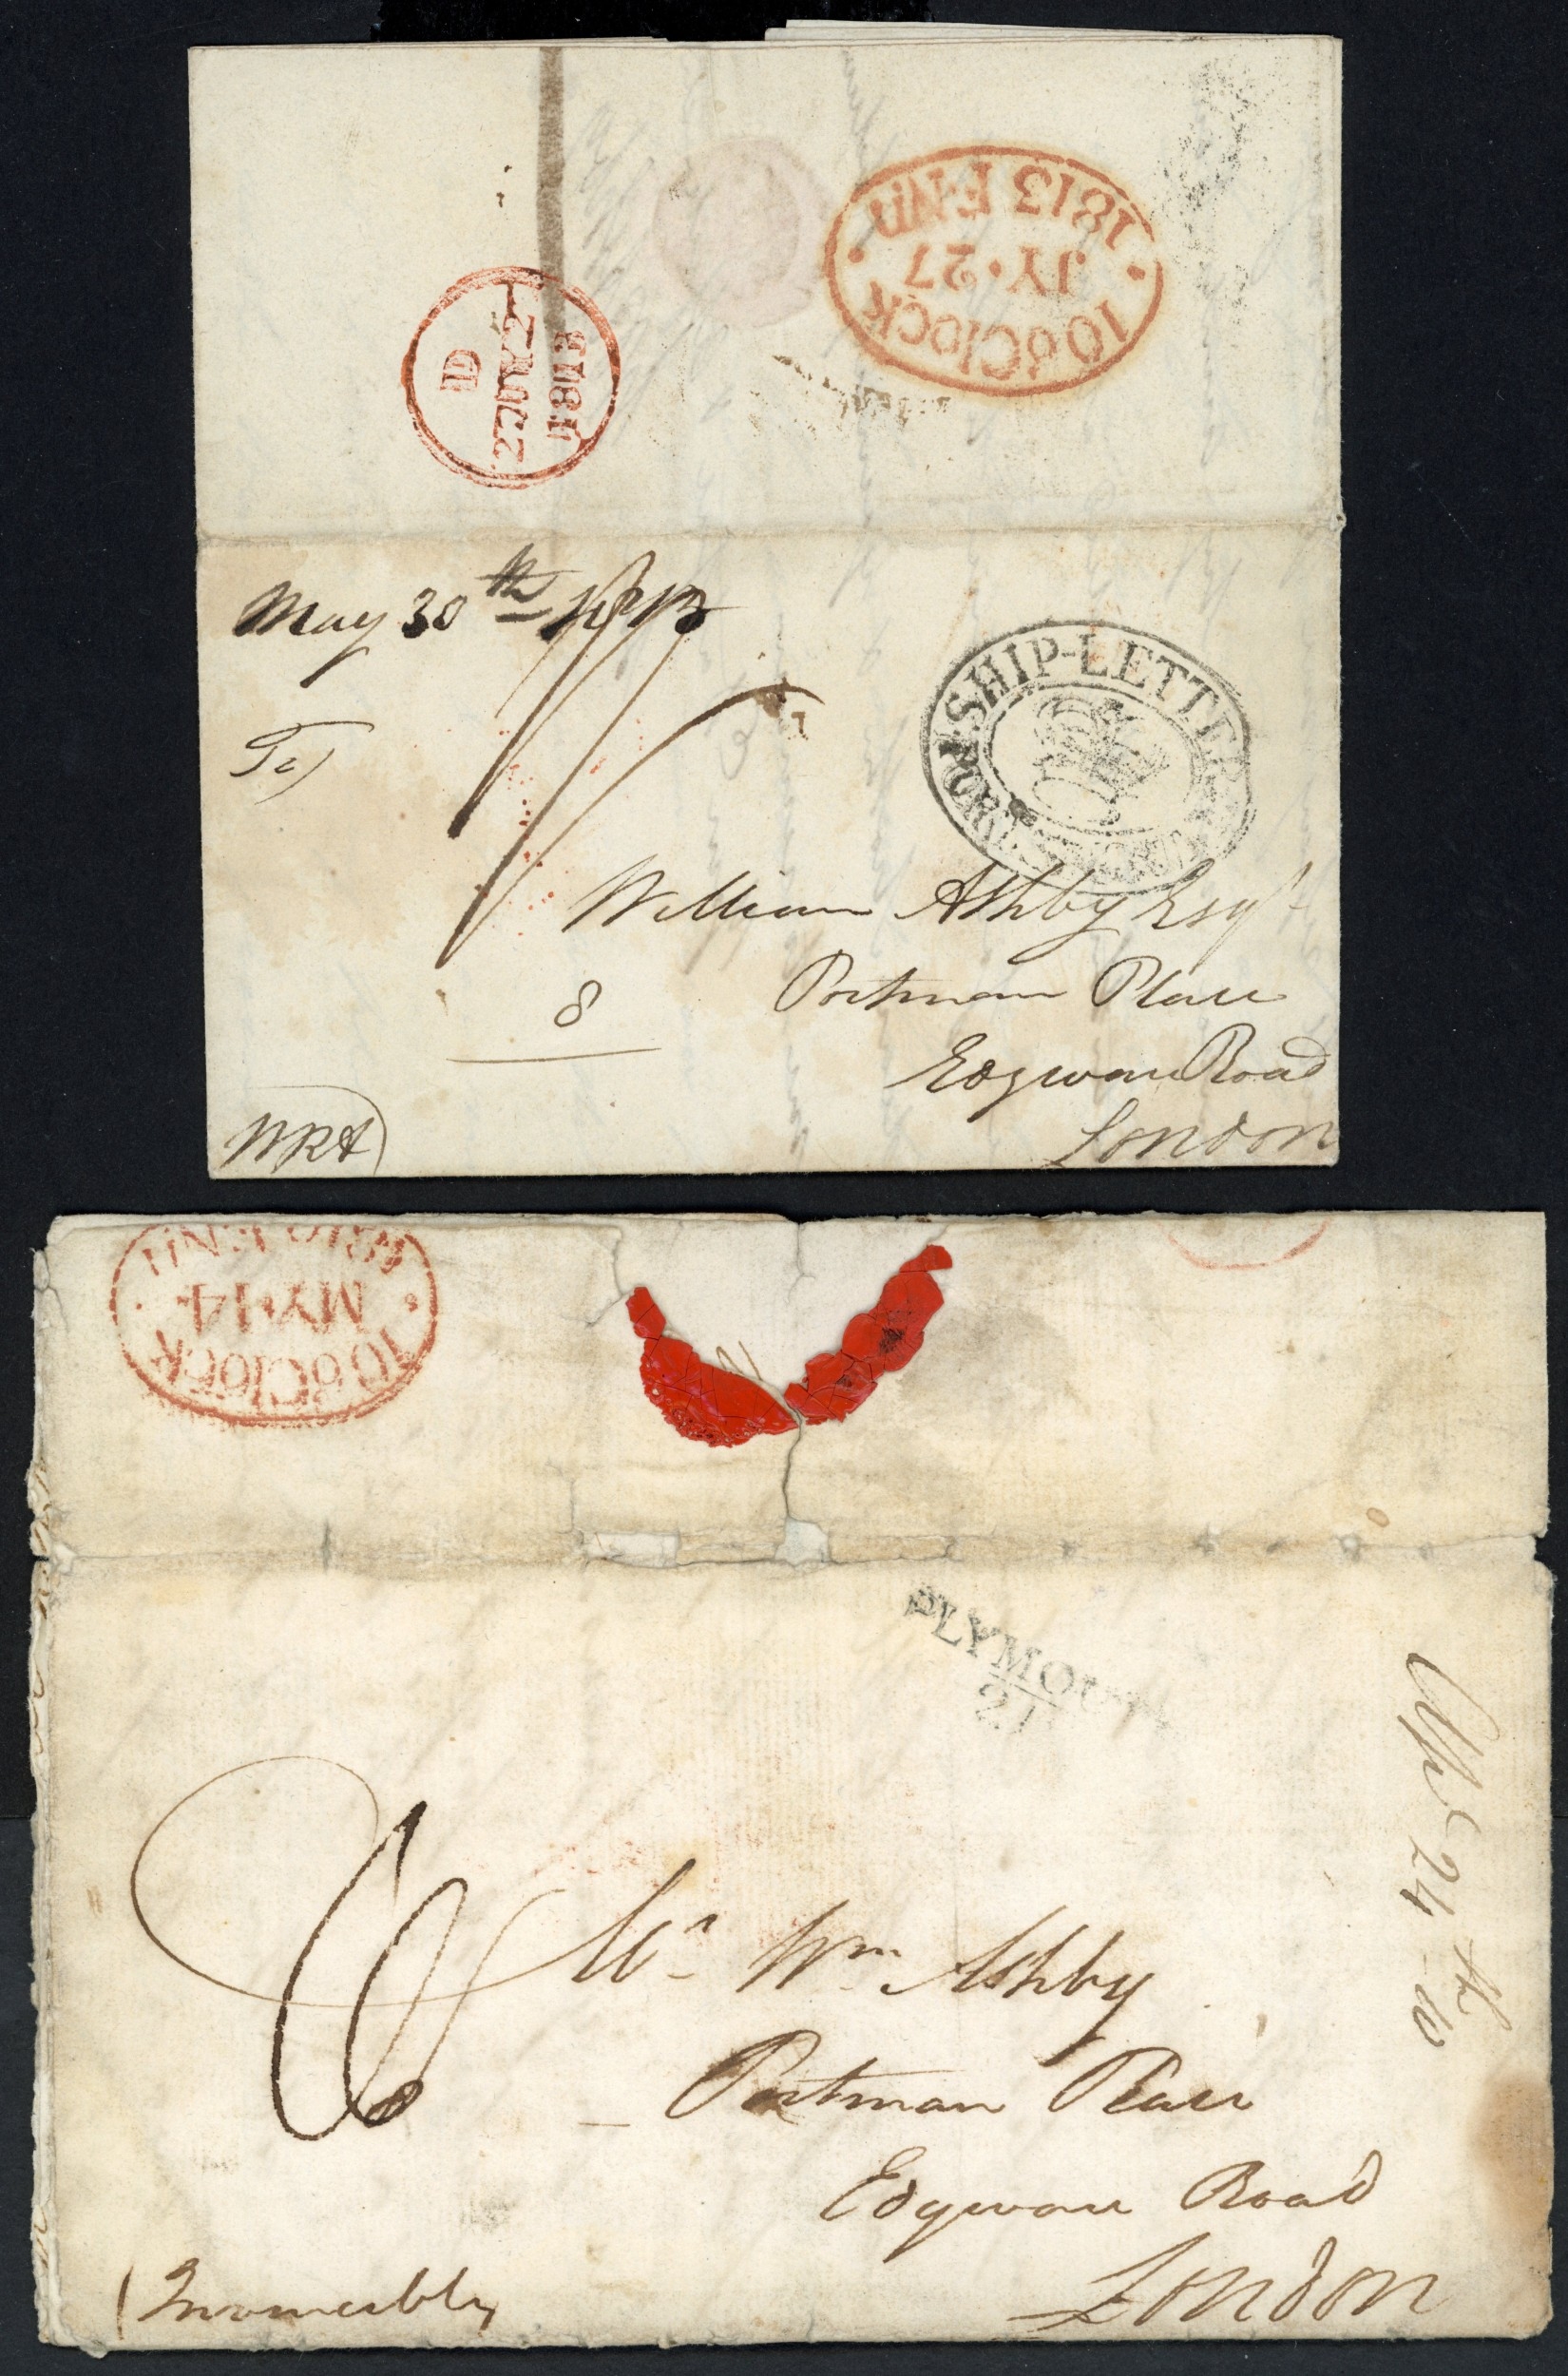 10 o'Clock
JY · 27
1813 F.Nn
D
27 JY 2
1813
May 30th 1813
SHIP-LETTER
To
William Ashby Esqr
8
Portman Place
Edgware Road
London
WRA
10 o'Clock
MY 14
PLYMOUTH
Mr. Wm Ashby
Portman Place
Edgware Road
London
24th